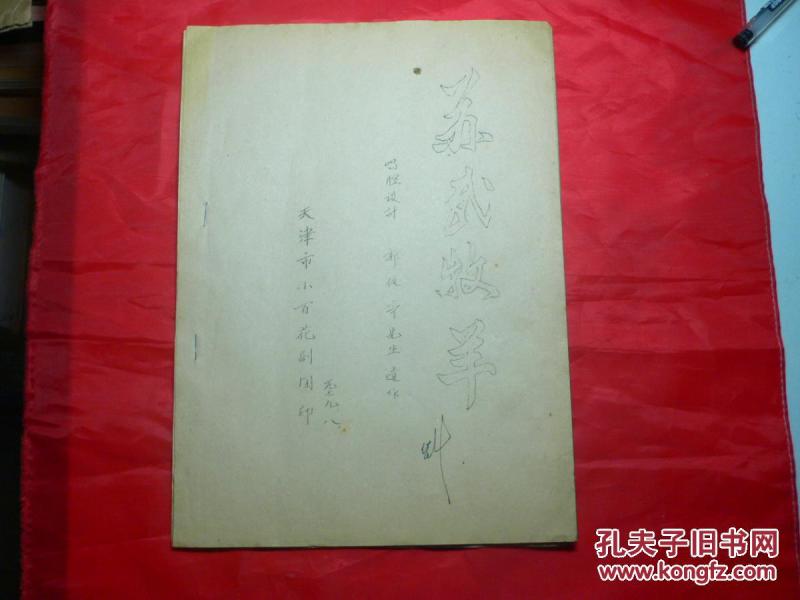 苏武牧羊
唱腔设计 郭仪宁先生遗作
天津市小百花剧团印
九七九、八
孔夫子旧书网
www.kongfz.com